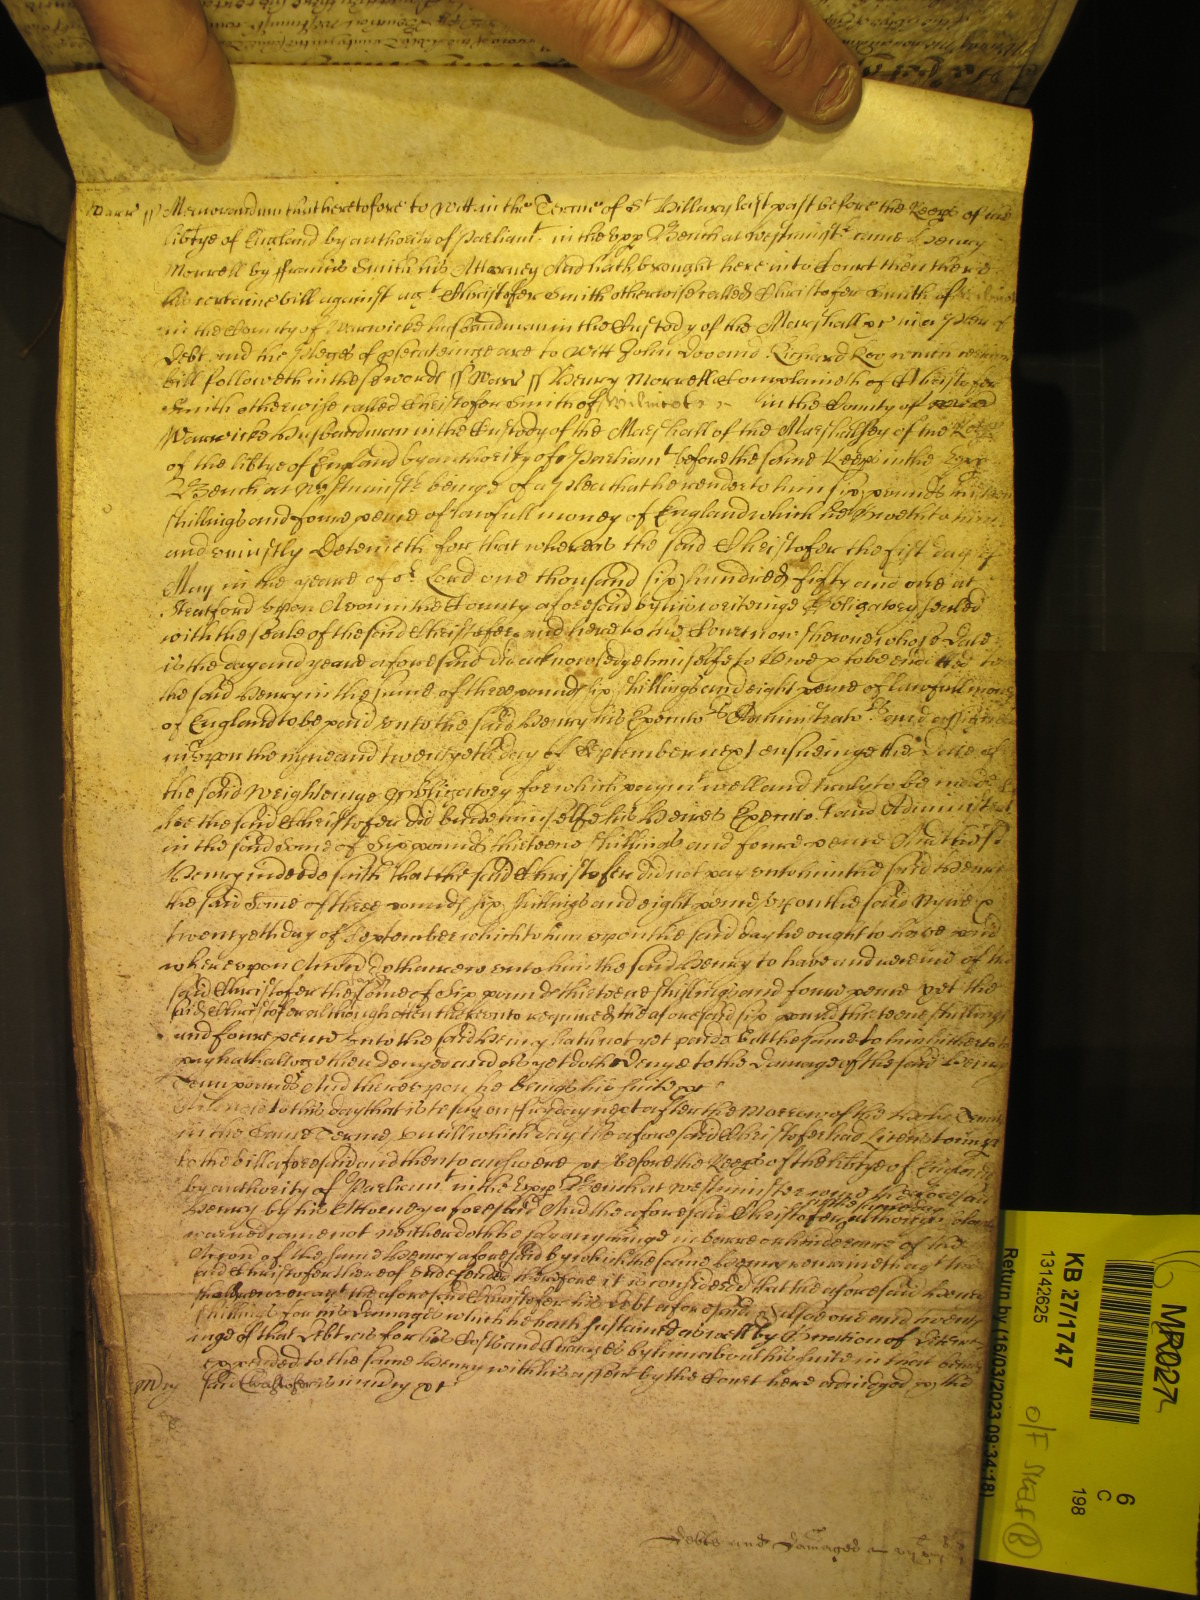 Warr ss Memorandum that heretofore to witt in the Terme of St Hillary last past before the Keeps of the
libtye of England by authority of Parliamt in the Upp Bench at Westminstr came Henry
Morrell by Francis Smith his Attorney And hath brought here into Court then there
his certaine bill against agt Christofer Smith otherwise called Christofer Smith of
in the County of Warwicke husbandman in the Custody of the Marshall &c in a Plea of
Debt and the Pledges of psecuteinge are to witt John Doo and Richard Roo which certaine
bill followeth in these words ss Warr ss Henry Morrell Complaineth of Christofer
Smith otherwise called Christofer Smith of in the County of
Warwicke Husbandman in the Custody of the Marshall of the Marshalsey of the Keeps
of the libtye of England by authority of Parliamt before the same Keeps in the Upp
Bench at Westminstr beinge of a Plea that he render to him six pounds thirteen
shillings and foure pence of lawfull money of England which he oweth to him
and uniustly Deteineth for that whereas the said Christofer the first day of
May in the yeare of or Lord one thousand six hundred fifty and one at
Stratford upon Avon in the County aforesaid by his writeinge Obligatory sealed
with the seale of the said Christofer and here to the Court now shewne whose Date
is the day and yeare aforesaid did acknowledge himselfe to Owe & to be indebted to
the said Henry in the sume of three pounds six shillings and eight pence of lawfull mony
of England to be paid unto the said Henry his Executors Administrators and assignes
in & upon the nyne and twentyeth day of September next ensueinge the Date of
the said Writeinge Obligatory for which paymt well and truly to be made
hee the said Christofer did binde himselfe his Heires Executors and Administrat
in the said Some of Six pounds thirteene shillings and foure pence And the sd
Henry indeede saith that the said Christofer did not pay unto him the said Henry
the said Some of three pounds six shillings and eight pence upon the said Nyne &
twentyeth day of September which to him upon the said day he ought to have paid
whereupon Accon Doth accrew unto him the said Henry to have and demand of the
said Christofer the said Some of Six pounds thirteene shillings and foure pence yet the
said Christofer although often thereunto required the aforesaid six pounds thirteene shillings
and foure pence unto the said Henry hath not yet paid But the same to him hitherto to
pay hath alwayes denyed and as yet doth Denye to the Damage of the said Henry
Tenn pounds And thereupon he brings his suite &c
And now to this day that is to say on Fryday next after the Morrow of the
in the same Terme untill which day the aforesaid Christofer had licence to imple
to the bill aforesaid and then to answere &c before the Keeps of the libtye of England
by authority of Parliamt in the Upp Bench at Westminster came the aforesaid
Henry by his Attorney aforesaid And the aforesaid Christofer
came not neither doth he say any thinge in barre or hinderance of the
Accon of the same Henry aforesaid by which the same Henry remaineth agt the
said Christofer thereof undefended Therefore it is considered that the aforesaid Henry
recover agt the aforesaid Christofer his Debt aforesaid And also one and twenty
shillings for his Damages which he hath sustained as well by Occasion of deteyn
inge of that Debt as for his Costs and Charges by him about his suite in that behalfe
expended to the same Henry with his assent by the Court here adiudged & the
said Christofer in mercy &c
Mcy
Debts and Damages
MR027
KB 27/1747
13142625
Return by (16/03/2023 09:34:18)
6
C
198
O/F Shelf (B)